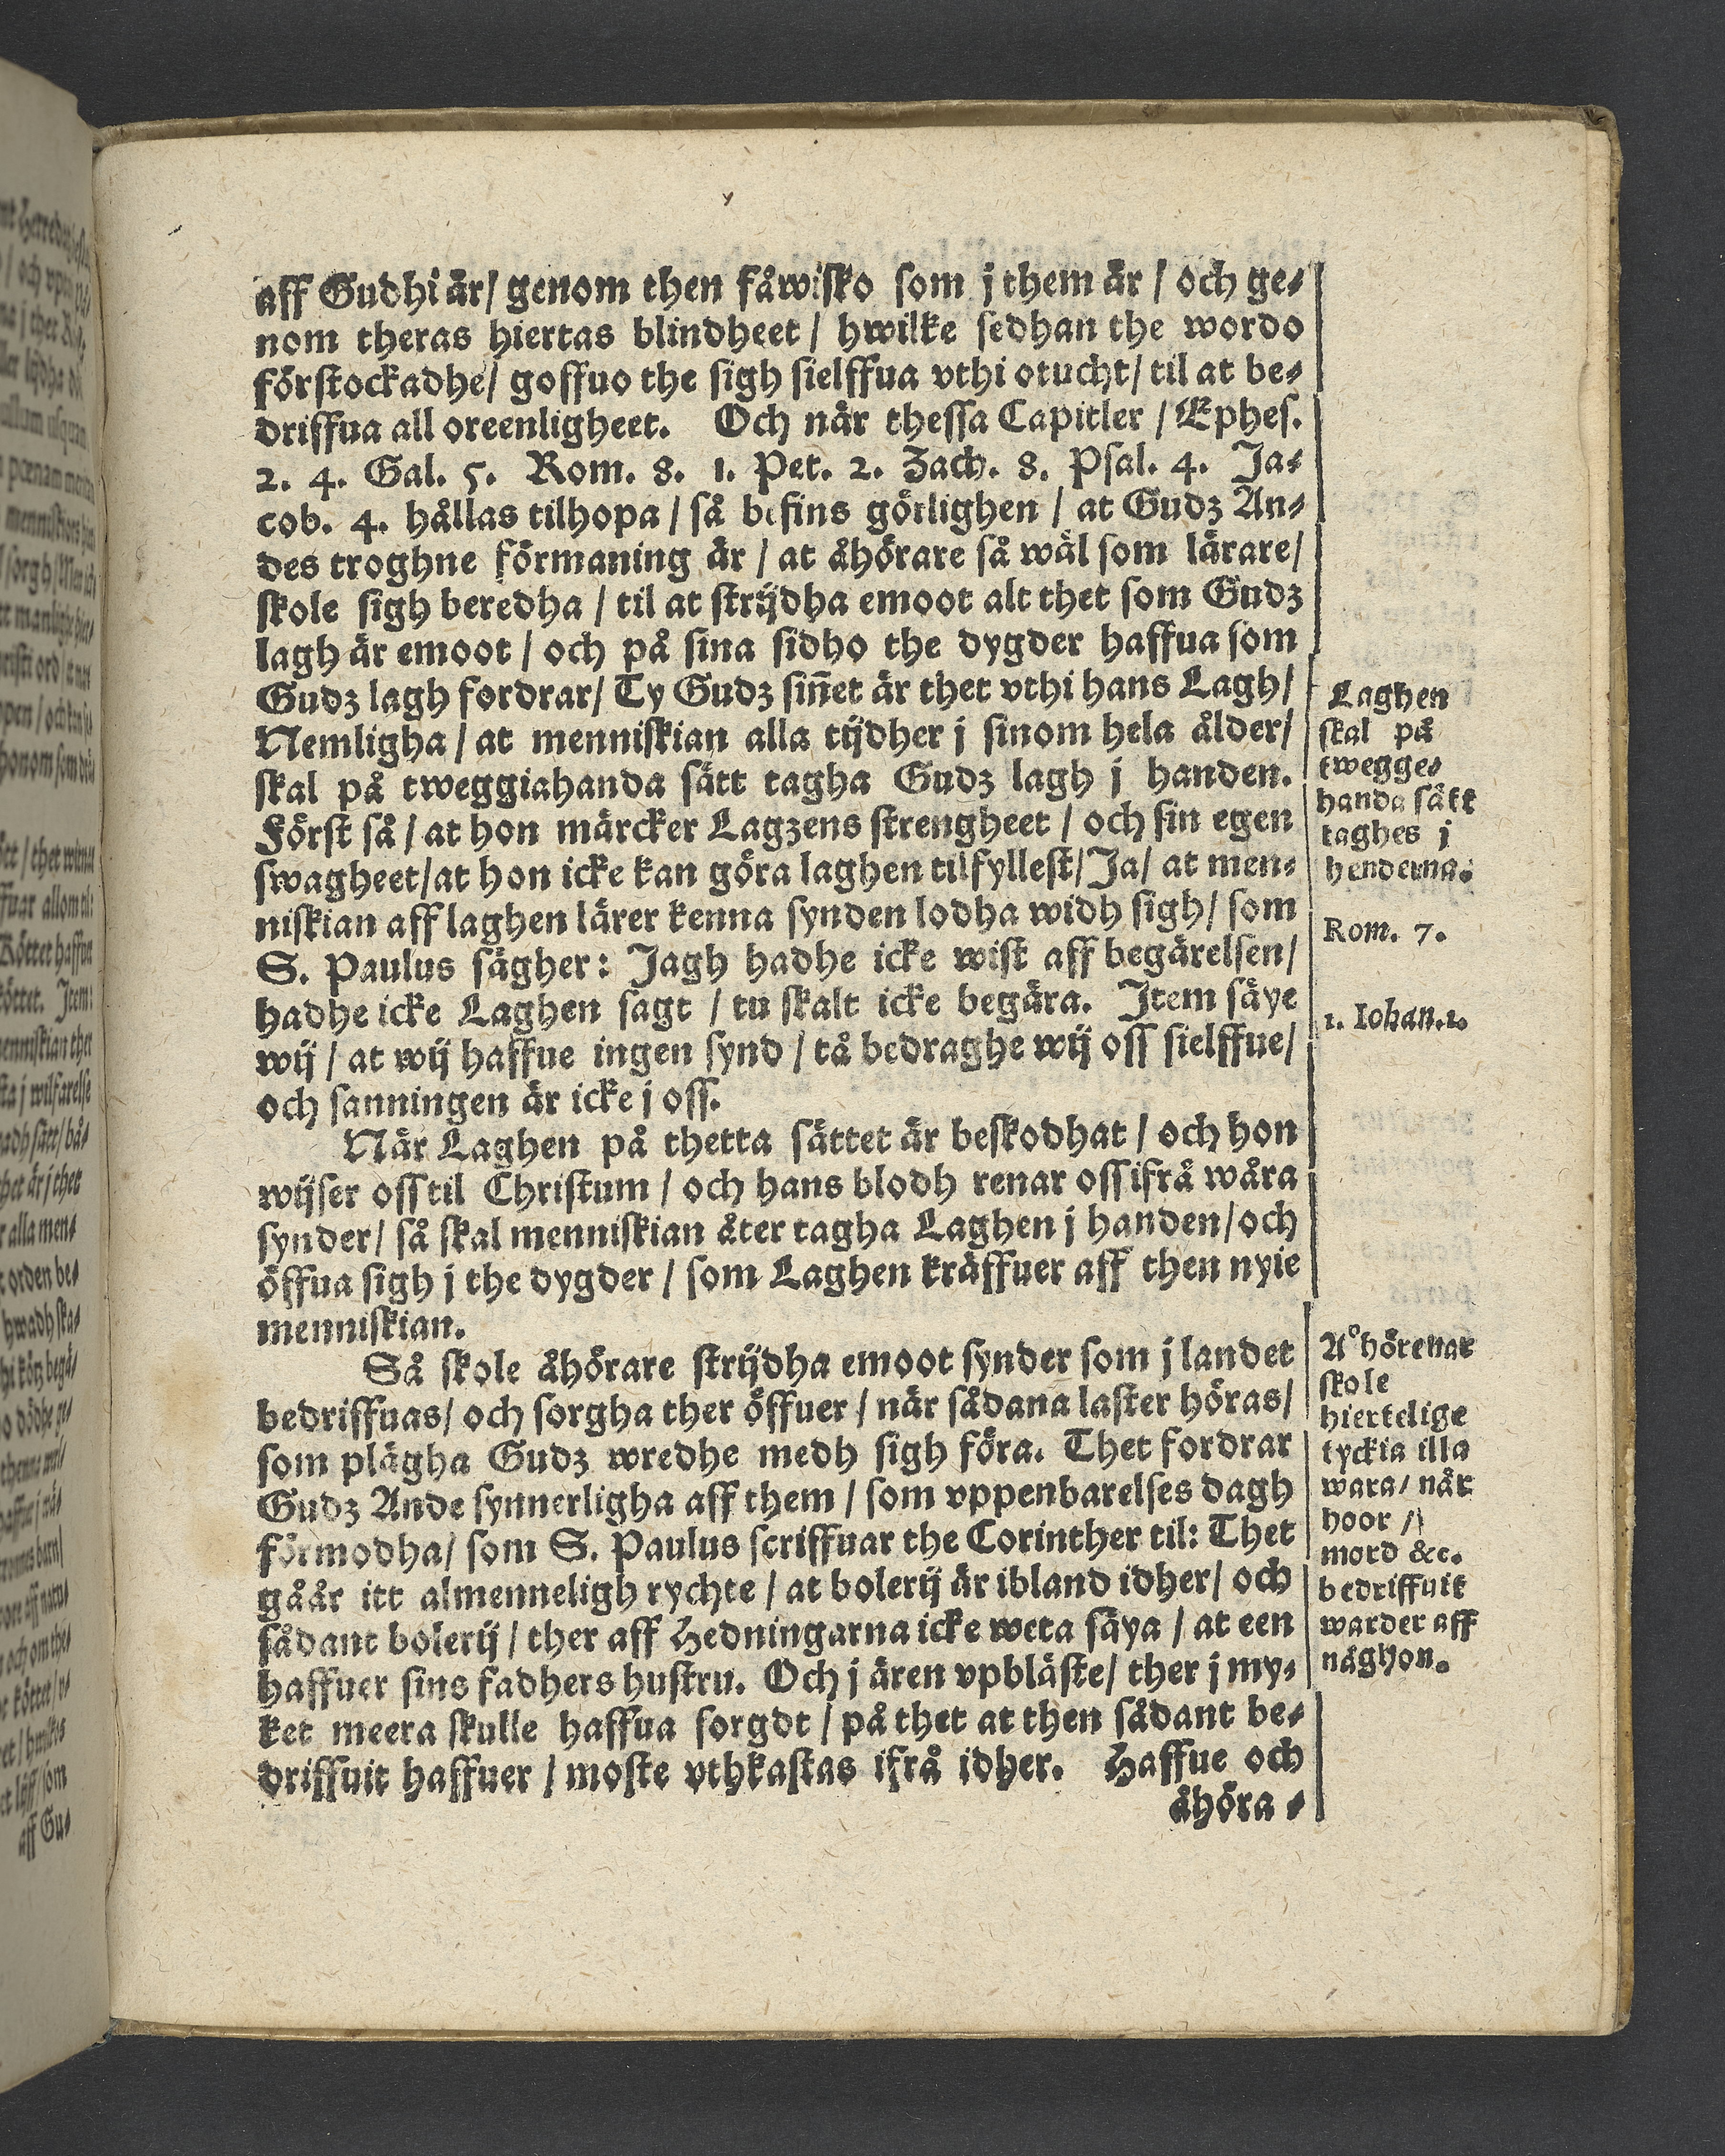 aff Gudhi är/ genom then fåwisko som j them är / och ge-
nom theras hiertas blindheet / hwilke sedhan the wordo
förstockadhe/ goffuo the sigh sielffua vthi otucht/ til at be-
driffua all oreenligheet. Och når thessa Capitler / Ephes.
2. 4. Gal. 5. Rom. 8. 1. Pet. 2. Zach. 8. Psal. 4. Ja-
cob. 4. hållas tilhopa / så befins görlighen / at Gudz An-
des troghne förmaning är / at åhörare så wäl som lärare/
skole sigh beredha / til at strijdha emoot alt thet som Gudz
lagh är emoot / och på sina sidho the dygder haffua som
Gudz lagh fordrar/ Ty Gudz sin̄et är thet vthi hans Lagh/
Nemligha / at menniskian alla tijdher j sinom hela ålder/
skal på tweggiahanda sätt tagha Gudz lagh j handen.
Först så / at hon märcker Lagzens strengheet / och sin egen
swagheet/at hon icke kan göra laghen tilfyllest/ Ja/ at men-
niskian aff laghen lärer kenna synden lodha widh sigh/ som
S. Paulus sägher: Jagh hadhe icke wist aff begärelsen/
hadhe icke Laghen sagt / tu skalt icke begära. Item säye
wij / at wij haffue ingen synd / tå bedraghe wij oss sielffue/
och sanningen är icke j oss.
När Laghen på thetta sättet är beskodhat / och hon
wijser oss til Christum / och hans blodh renar oss ifrå wåra
synder/ så skal menniskian åter tagha Laghen j handen/och
öffua sigh j the dygder / som Laghen kräffuer aff then nyie
menniskian.
Så skole åhörare strijdha emoot synder som j landet
bedriffuas/ och sorgha ther öffuer / när sådana laster höras/
som plägha Gudz wredhe medh sigh föra. Thet fordrar
Gudz Ande synnerligha aff them / som vppenbarelses dagh
förmodha/ som S. Paulus scriffuar the Corinther til: Thet
gåår itt almenneligh rychte / at bolerij är ibland idher/ och
sådant bolerij / ther aff Hedningarna icke weta säya / at een
haffuer sins fadhers hustru. Och j ären vpbläste/ ther j my-
ket meera skulle haffua sorgdt / på thet at then sådant be-
driffuit haffuer / moste vthkastas ifrå idher. Haffue och
åhöra -
Laghen
skal på
twegge-
handa sätt
taghes j
henderna.
Rom. 7.
1. Iohan.1.
A°hörenar
skole
hiertelige
tyckia illa
wara/ når
hoor /
mord &c.
bedriffuit
warder aff
någhon.